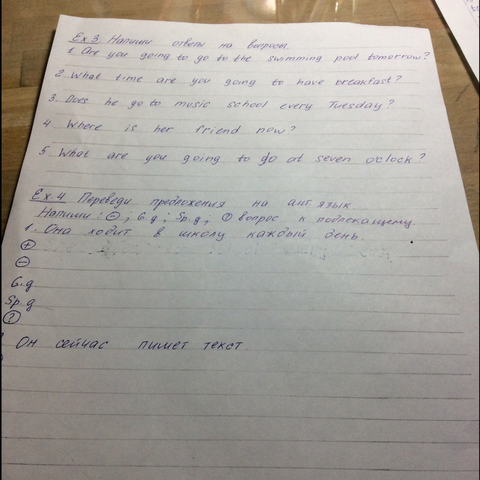 Ex 3 Напиши ответы на вопросы.
1. Are you going to go to the swimming pool tomorrow?
2. What time are you going to have breakfast?
3. Does he go to music school every Tuesday?
4. Where is her friend now?
5. What are you going to do at seven o'clock?
Ex 4 Переведи предложения на анг. язык.
Напиши: ⊖; G.q; Sp.q; ? вопрос к подлежащему.
1. Она ходит в школу каждый день.
⊕
⊖
G.q
Sp.q
?
Он сейчас пишет текст